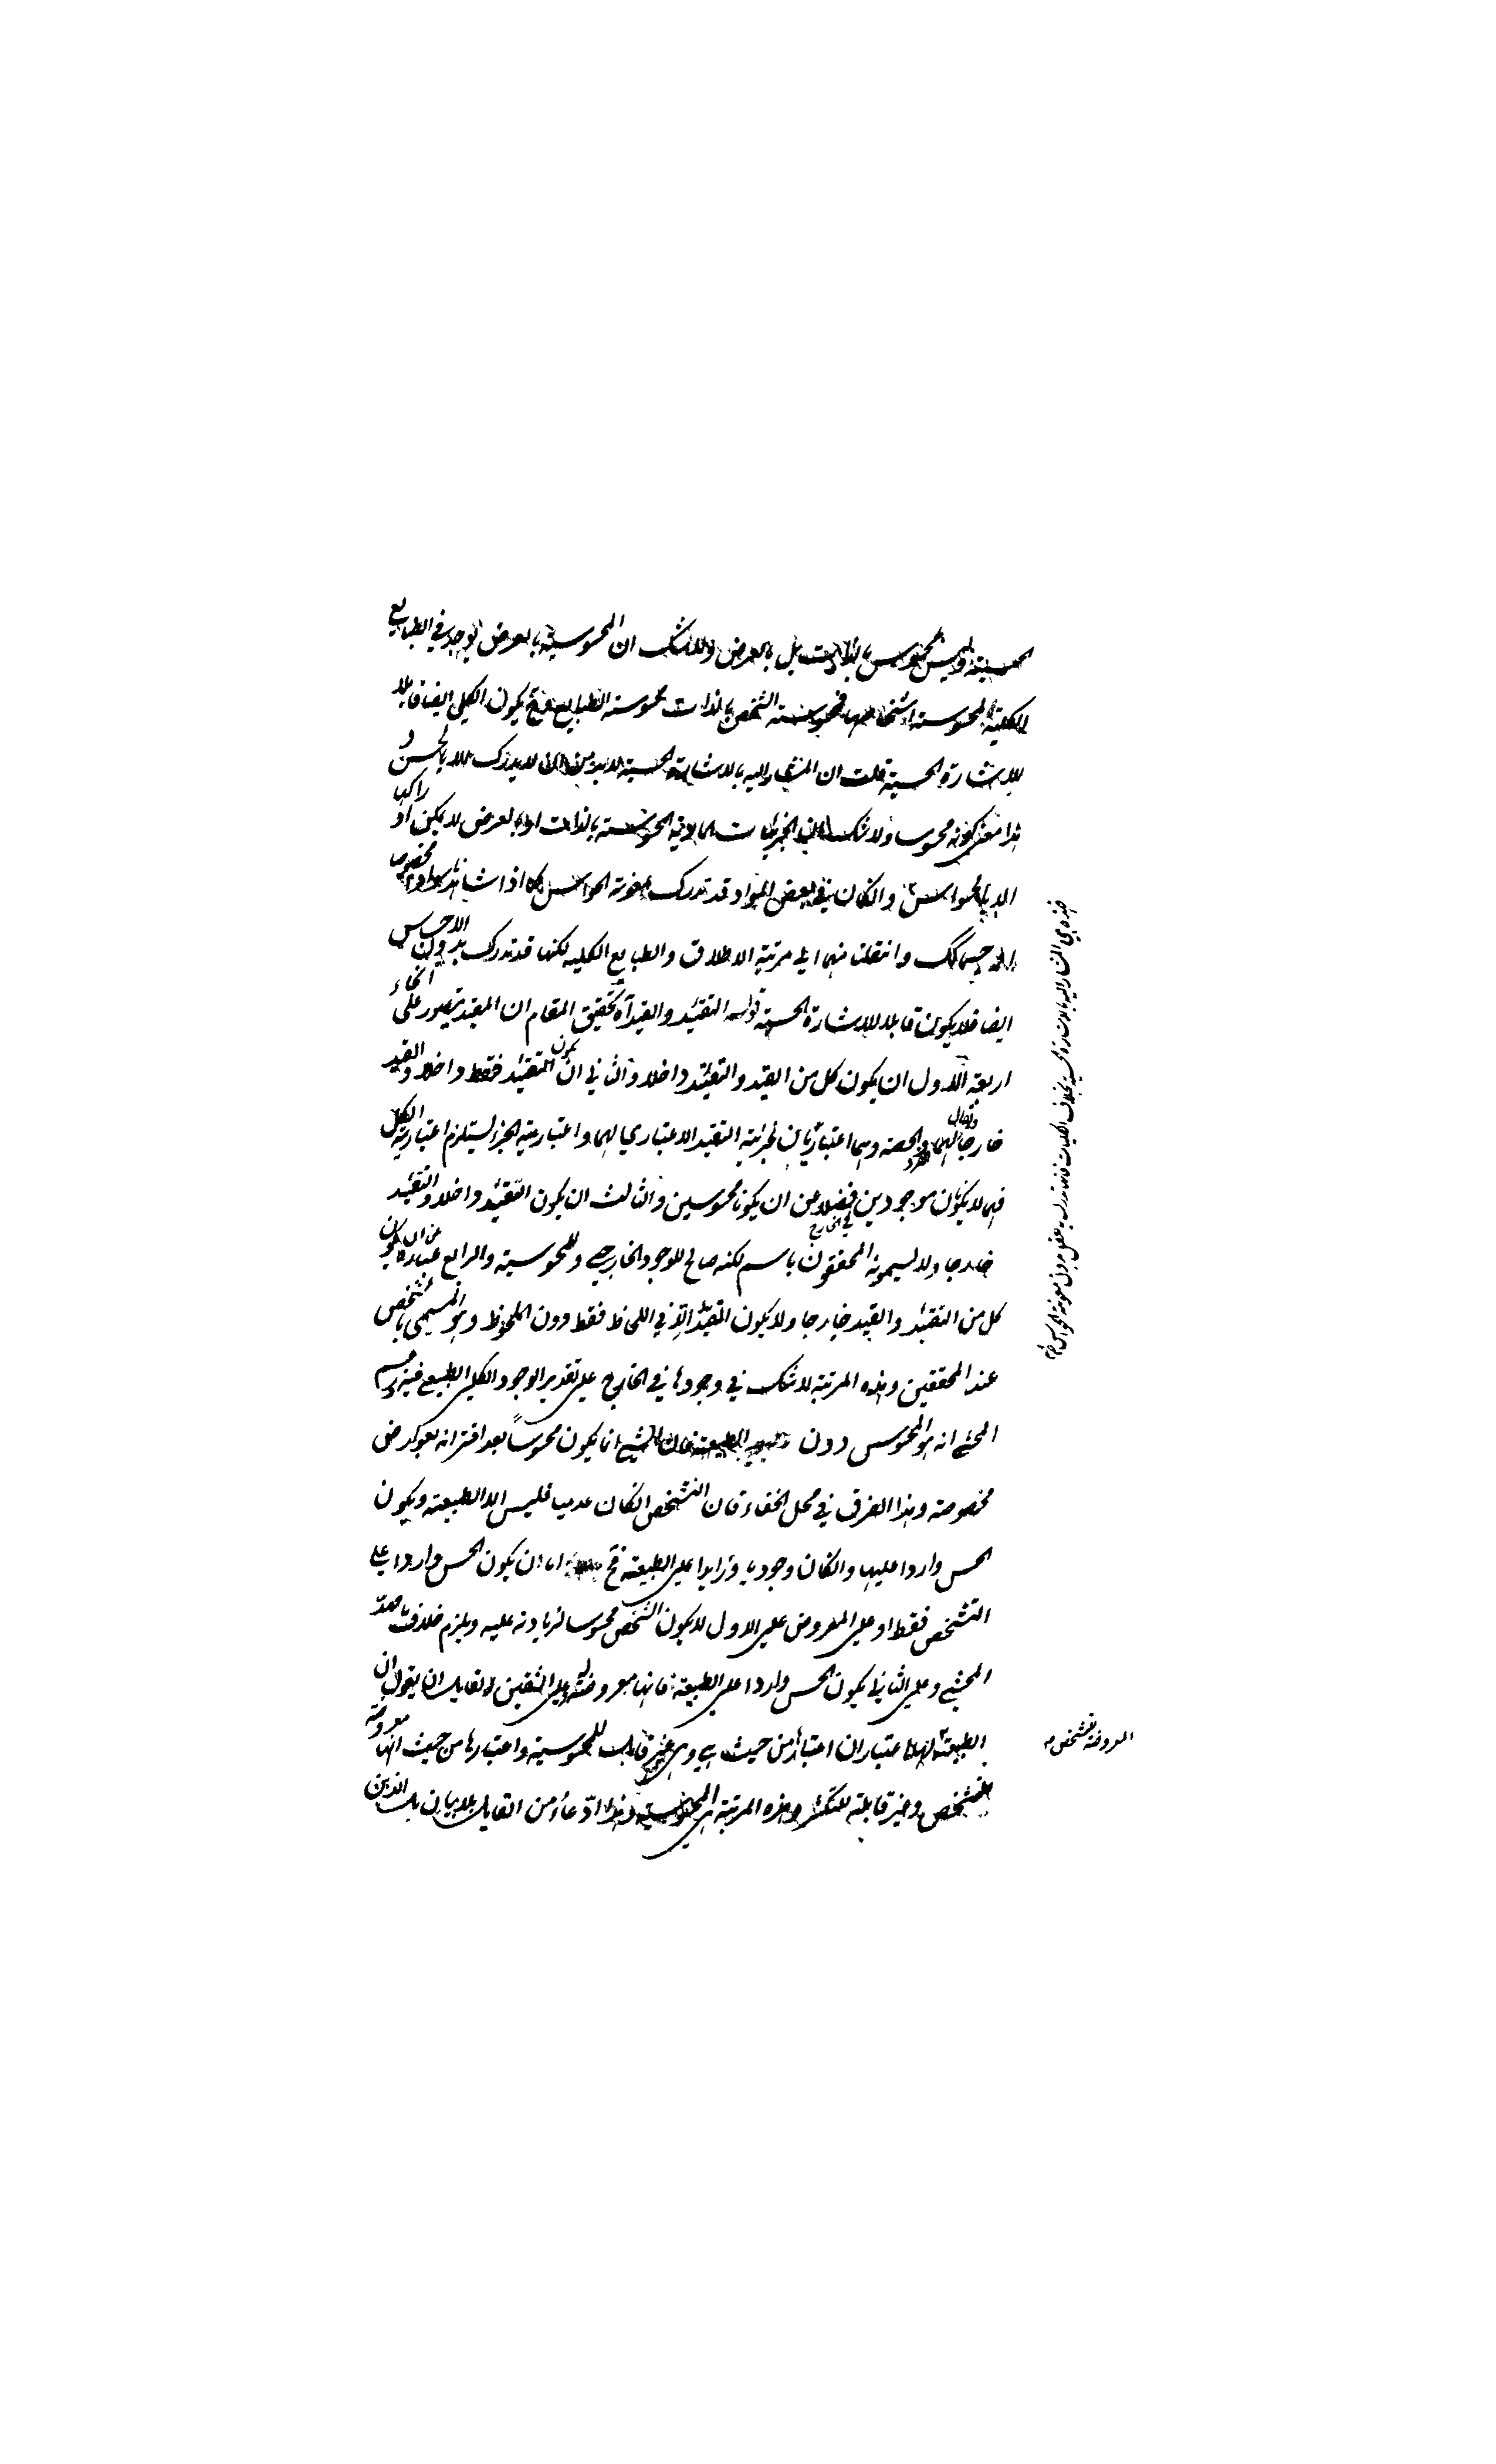 الحسية وليس محسوسا بالذات بل بالعرض ولا شك ان المحسوسية بالعرض توجد في الطبايع
الكلية المحسوسة اشخاصها فمحسوسية الشخص بالذات محسوسة الطبايع فح يكون الكلي ايضا قابلا
للاشارة الحسية قلت ان المشار اليه بالاشارة الحسية لا بد من ان لا يدرك الا بالحس و
هذا معنى كونه محسوسا ولا شك ان الجزئيات المادية المحسوسة بالذات او بالعرض لا يمكن ادراكها
الا بالحواس والكان في بعض المواد قد تدرك بمعونة الحواس كما اذا شاهدنا سوادا مخصوصا
وانتقلنا منها الى مرتبة الاطلاق والطبايع الكلية لكنها قد تدرك بدون الاحساس
ايضا فلا يكون قابلا للاشارة الحسية قوله التقئيد والقيد آه تحقيق المقام ان المقيد يتصور على انحاء
اربعة الاول ان يكون كل من القيد والتقئيد داخلا والثاني ان يكون التقئيد فقط داخلا والقيد
خارجا ويقال لهما الفرد والحصة وهما اعتباريان لجزئية التقيد الاعتباري لهما واعتبارية الجزء يستلزم اعتبارية الكل
فهما لا يكونان موجودين في الخارج فضلا عن ان يكونا محسوسين والثالث ان يكون التقئيد داخلا والتقئيد
خارجا ولا يسمونه المحققون باسم لكنه صالح للوجود الخارجي وللمحسوسية والرابع عبارة عن ان يكون
كل من التقئيد والقيد خارجا ولا يكون التقئيد الا في اللحاظ فقط دون الملحوظ وهو المسمى بالشخص
عند المحققين وهذه المرتبة لا شك في وجودها في الخارج على تقدير الوجود الكلي الطبيعي فيزعم
المحشي انه هو المحسوس دون الطبيعة فان الشيخ انما يكون محسوساً بعد اقترانه بعوارض
مخصوصة وهذا الفرق في محل الخفاء فان التشخص الكان عدميا فليس الا الطبيعة ويكون
الحس واردا عليها والكان وجوديا وزايدا على الطبيعة فح اما ان يكون الحس واردا على
التشخص فقط او على المعروض على الاول لا يكون الشخص محسوسا لزيادته عليه ويلزم خلاف ما صدّ
المحشي وعلى الثاني يكون الحس واردا على الطبيعة فانها معروضة له على الشقين ولقايل ان يقول ان
الطبيعة لها اعتباران اعتبارها من حيث هي وهي غير قابلة للمحسوسية واعتبارها من حيث انها معروضة
للتشخص وغير قابلة للتكثر وهذه المرتبة هي المحسوسية وهذا ادّعاء من القايل بلا بيان بل الذين
هذه هي المشار اليه بالاشارة الحسية بخلاف الكليات فانها تدرك بالعقل بدون معونة الحواس
المعروضة للتشخص